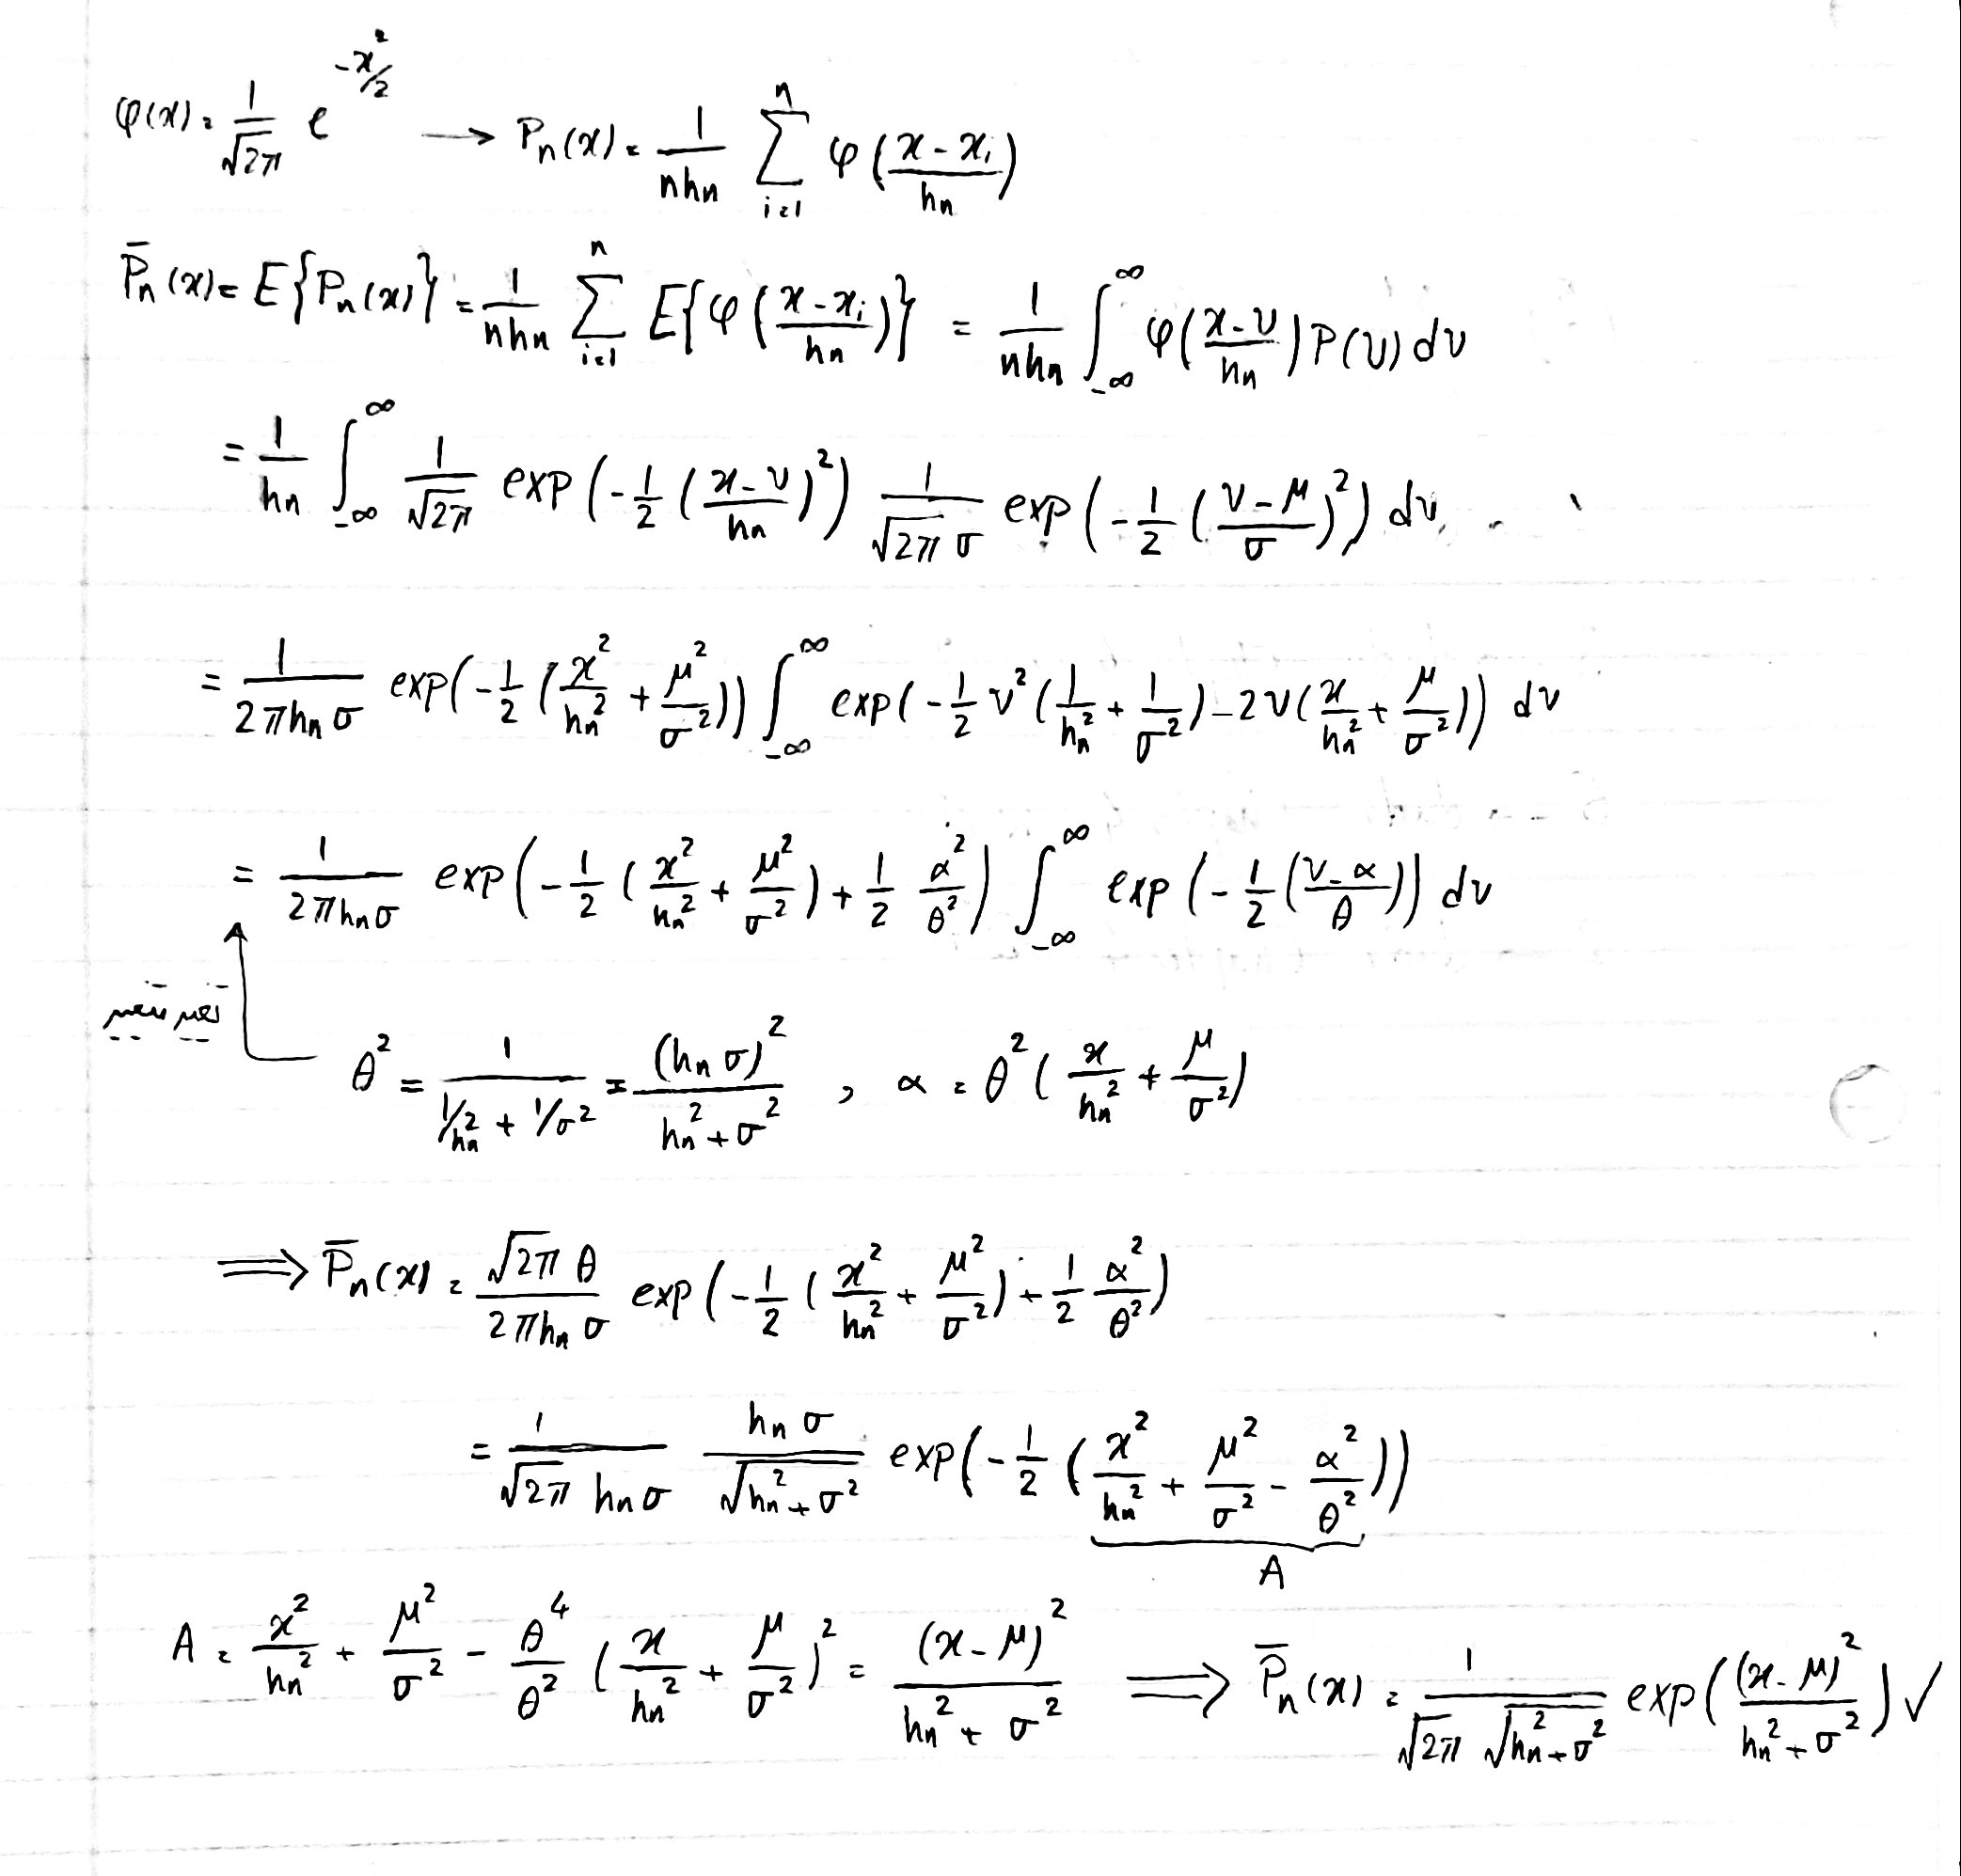 φ(x) = 1/√2π e^(-x²/2) → Pn(x) = 1/(nhn) Σ_{i=1}^{n} φ((x-xi)/hn)
P̄n(x) = E{Pn(x)} = 1/(nhn) Σ_{i=1}^{n} E{φ((x-xi)/hn)} = 1/(nhn) ∫_{-∞}^{∞} φ((x-v)/hn) P(v) dv
= 1/hn ∫_{-∞}^{∞} 1/√2π exp(-1/2 ((x-v)/hn)²) 1/(√2π σ) exp(-1/2 ((v-μ)/σ)²) dv
= 1/(2πhnσ) exp(-1/2 (x²/hn² + μ²/σ²)) ∫_{-∞}^{∞} exp(-1/2 v² (1/hn² + 1/σ²) - 2v(x/hn² + μ/σ²)) dv
= 1/(2πhnσ) exp(-1/2 (x²/hn² + μ²/σ²) + 1/2 α²/θ²) ∫_{-∞}^{∞} exp(-1/2 ((v-α)/θ)) dv
تغییر متغیر
θ² = 1/(1/hn² + 1/σ²) = (hnσ)²/(hn² + σ²) , α = θ² (x/hn² + μ/σ²)
⟹ P̄n(x) = √2π θ/(2πhnσ) exp(-1/2 (x²/hn² + μ²/σ²) + 1/2 α²/θ²)
= 1/(√2π hnσ) hnσ/√(hn² + σ²) exp(-1/2 (x²/hn² + μ²/σ² - α²/θ²))
A
A = x²/hn² + μ²/σ² - θ⁴/θ² (x/hn² + μ/σ²)² = (x-μ)²/(hn² + σ²) ⟹ P̄n(x) = 1/(√2π √(hn² + σ²)) exp((x-μ)²/(hn² + σ²)) ✓